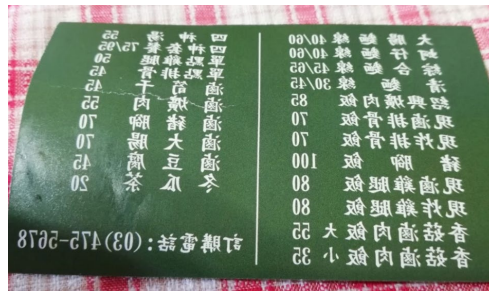 大腸麵線 40/60
蚵仔麵線 40/60
綜合麵線 45/65
清麵線 30/45
紹興爌肉飯 85
現滷排骨飯 70
現炸排骨飯 70
豬腳飯 100
現滷雞腿飯 80
現炸雞腿飯 80
香菇滷肉飯 大 55
香菇滷肉飯 小 35
四神湯 55
四神套餐 75/95
單點雞腿 50
單點排骨 45
滷筍干 45
滷爌肉 55
滷豬腳 70
滷大腸 70
滷豆腐 45
冬瓜茶 20
訂購電話：(03)475-5678